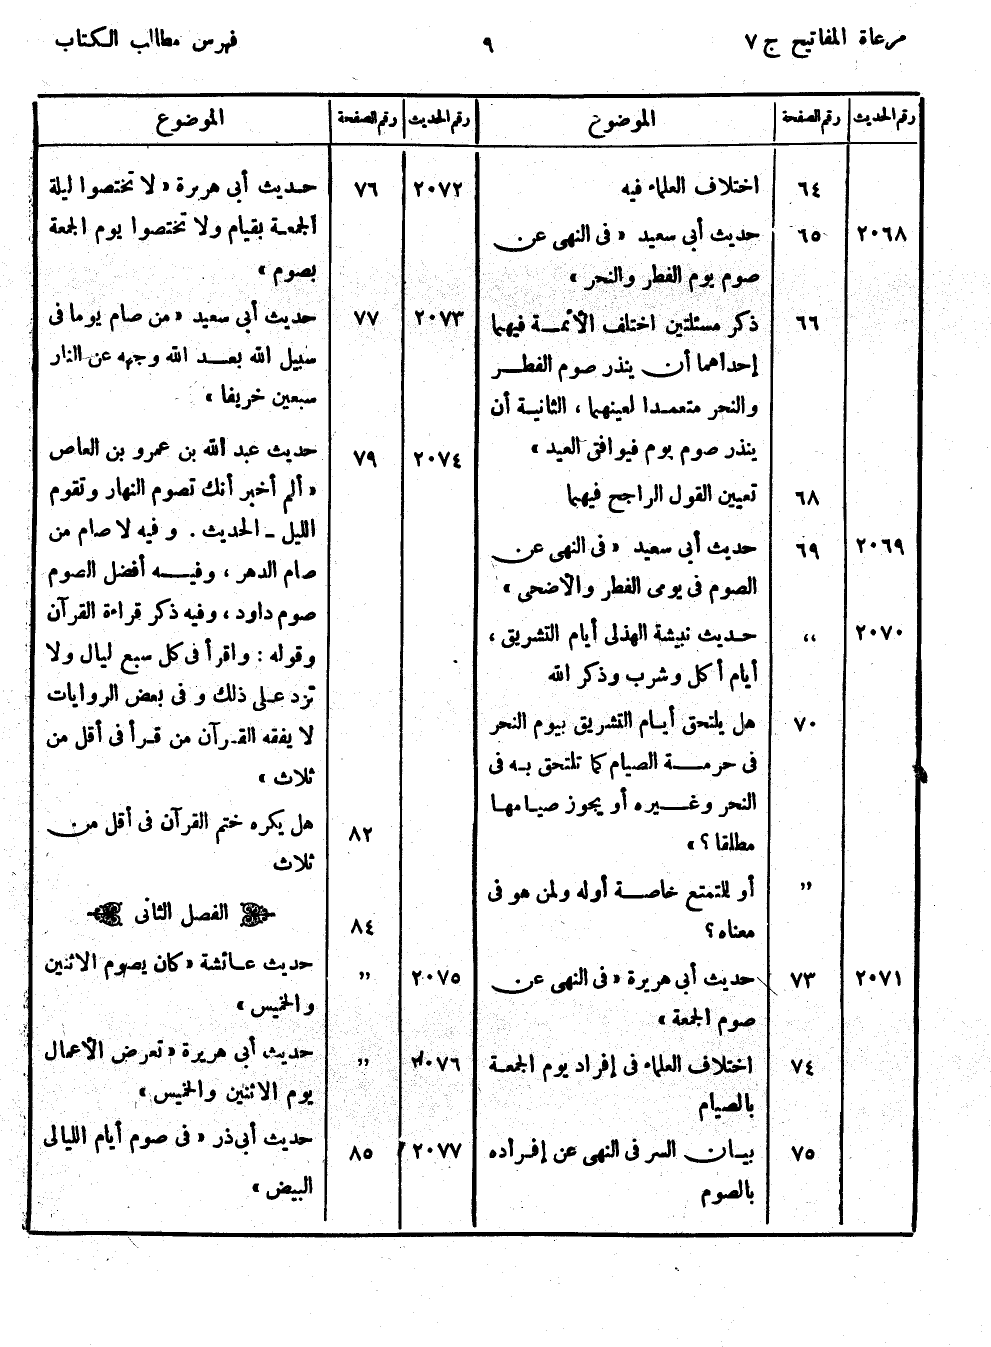 مرعاة المفاتيح ج ٧
٩
فهرس مطالب الكتاب
رقم الحديث رقم الصفحة الموضوع
٦٤ اختلاف العلماء فيه
٢٠٦٨ ٦٥ حديث أبى سعيد « فى النهى عن
صوم يوم الفطر والنحر »
٦٦ ذكر مسئلتين اختلف الأئمــة فيهما
إحداهما أن ينذر صوم الفطــر
والنحر متعمـدا لعينهما ، الثانيـة أن
ينذر صوم يوم فيوافق العيد »
٦٨ تعيين القول الراجح فيهما
٢٠٦٩ ٦٩ حديث أبى سعيد « فى النهى عن
الصوم فى يومى الفطر والأضحى »
٢٠٧٠ ,, حـديث نبيشة الهذلى أيام التشريق ،
أيام أكل وشرب وذكر الله
٧٠ هل يلتحق أيـام التشريق بيوم النحر
فى حرمــة الصيام كما تلتحق بـه فى
النحر وغــيره أو يجوز صيـامهـا
مطلقا ؟ »
,, أو للتمتع خاصــة أوله ولمن هو فى
معناه ؟
٢٠٧١ ٧٣ حديث أبى هريرة « فى النهى عن
صوم الجمعة »
٧٤ اختلاف العلماء فى إفراد يوم الجمعـة
بالصيام
٧٥ بيـان السر فى النهى عن إفـراده
بالصوم
رقم الحديث رقم الصفحة الموضوع
٢٠٧٢ ٧٦ حـديث أبى هريرة « لا تختصوا ليلة
الجمعـة بقيام ولا تختصوا يوم الجمعة
بصوم »
٢٠٧٣ ٧٧ حديث أبى سعيد « من صام يوما فى
سبيل الله بعــد الله وجهه عن النار
سبعين خريفا »
٢٠٧٤ ٧٩ حديث عبد الله بن عمرو بن العاص
« ألم أخبر أنك تصوم النهار وتقوم
الليل ـ الحديث . و فيه لا صام من
صام الدهر ، وفيــه أفضل الصوم
صوم داود ، وفيه ذكر قراءة القرآن
وقوله : واقرأ فى كل سبع ليال ولا
تزد عـلى ذلك و فى بعض الروايات
لا يفقه القـرآن من قـرأ فى أقل من
ثلاث »
٨٢ هل يكره ختم القرآن فى أقل من
ثلاث
٨٤ الفصل الثانى
٢٠٧٥ ,, حديث عـائشة « كان يصوم الاثنين
والخميس »
٢٠٧٦ ,, حديث أبى هريرة « تعرض الأعمال
يوم الاثنين والخميس »
٢٠٧٧ ٨٥ حديث أبى ذر « فى صوم أيام الليالى
البيض »